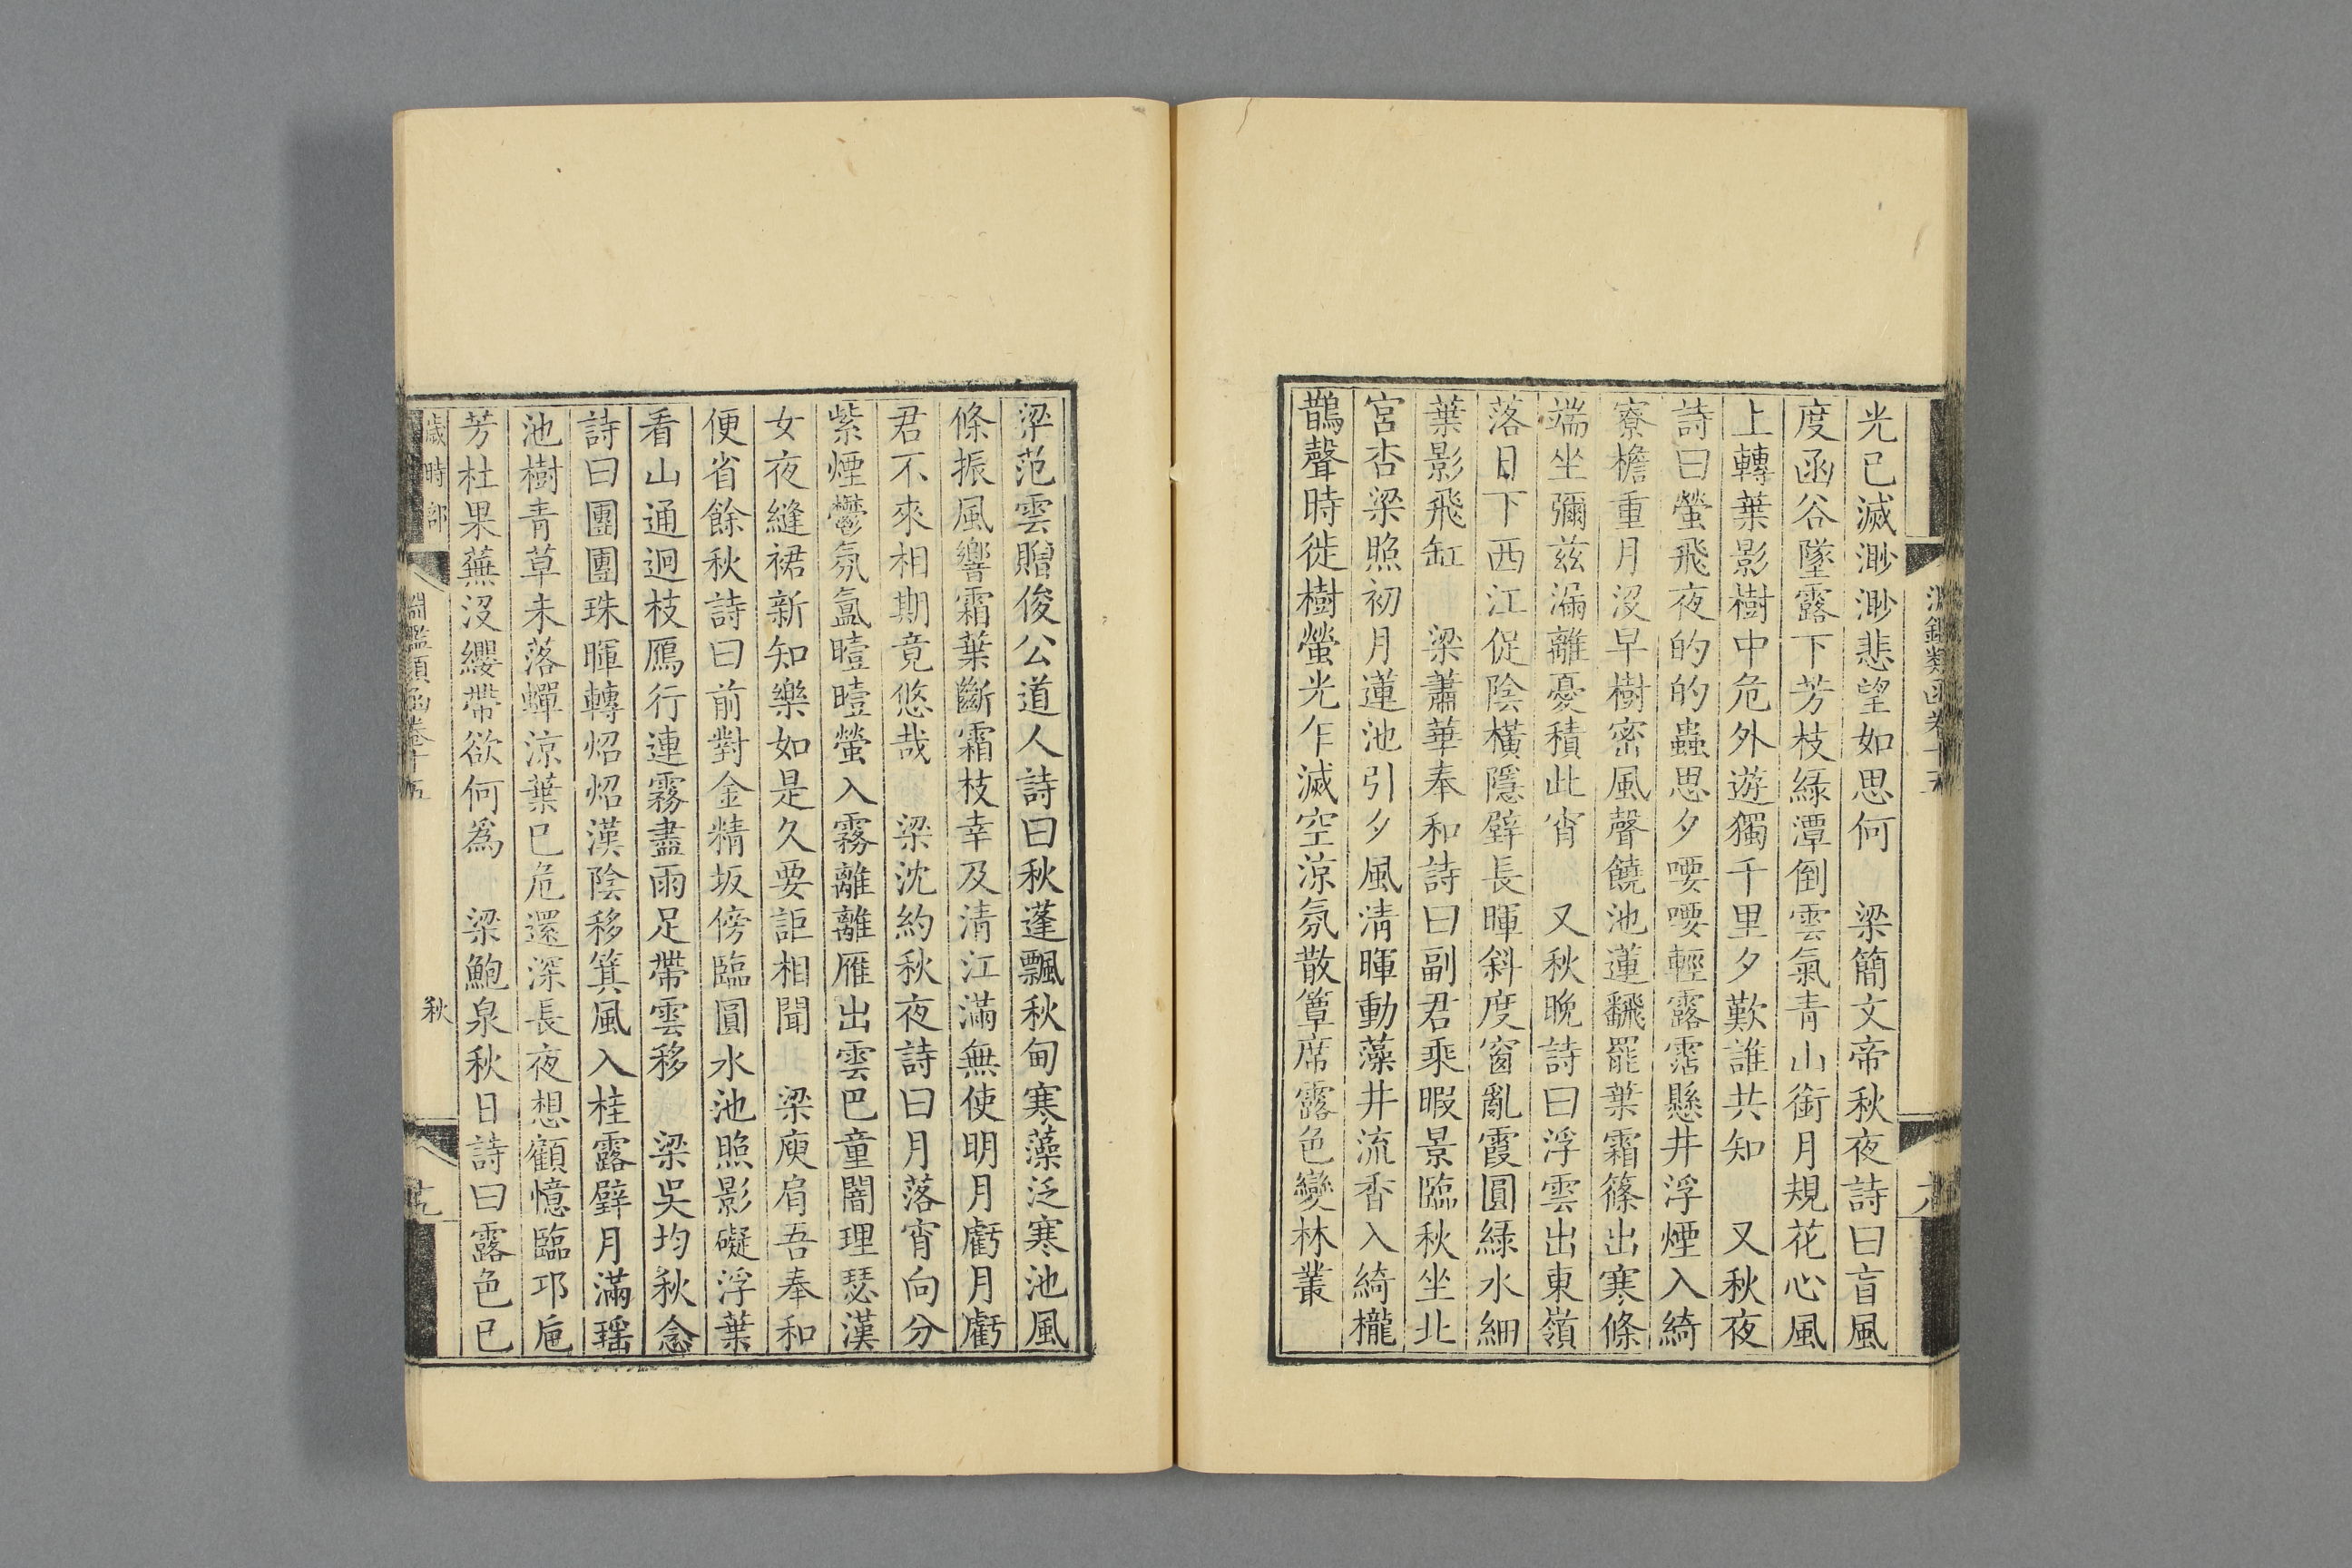 光已滅渺渺悲望如思何　梁簡文帝秋夜詩曰盲風
度函谷墜露下芳枝綠潭倒雲氣青山銜月規花心風
上轉葉影樹中危外遊獨千里夕歎誰共知　又秋夜
詩曰螢飛夜的的蟲思夕喓喓輕露霑懸井浮煙入綺
寮檐重月沒早樹密風聲饒池蓮飜罷葉霜篠出寒條
端坐彌茲漏離憂積此宵　又秋晚詩曰浮雲出東嶺
落日下西江促陰橫隱壁長暉斜度窗亂霞圓綠水細
葉影飛缸　梁蕭華奉和詩曰副君乘暇景臨秋坐北
宮杏梁照初月蓮池引夕風淸暉動藻井流香入綺櫳
鵲聲時徙樹螢光乍滅空涼氛散簟席露色變林叢
淵鑑類函卷十五
梁范雲贈俊公道人詩曰秋蓬飄秋甸寒藻泛寒池風
條振風響霜葉斷霜枝幸及清江滿無使明月虧月虧
君不來相期竟悠哉　梁沈約秋夜詩曰月落宵向分
紫煙鬱氛氳曀曀螢入霧離離雁出雲巴童闇理瑟漢
女夜縫裙新知樂如是久要詎相聞　梁庾肩吾奉和
便省餘秋詩曰前對金精坂傍臨圓水池照影礙浮葉
看山通迥枝鴈行連霧盡雨足帶雲移　梁吳均秋念
詩曰團團珠暉轉炤炤漢陰移箕風入桂露壁月滿瑤
池樹青草未落蟬涼葉已危還深長夜想顧憶臨邛巵
芳杜果蕪沒纓帶欲何爲　梁鮑泉秋日詩曰露色已
歲時部
淵鑑類函卷十五
秋